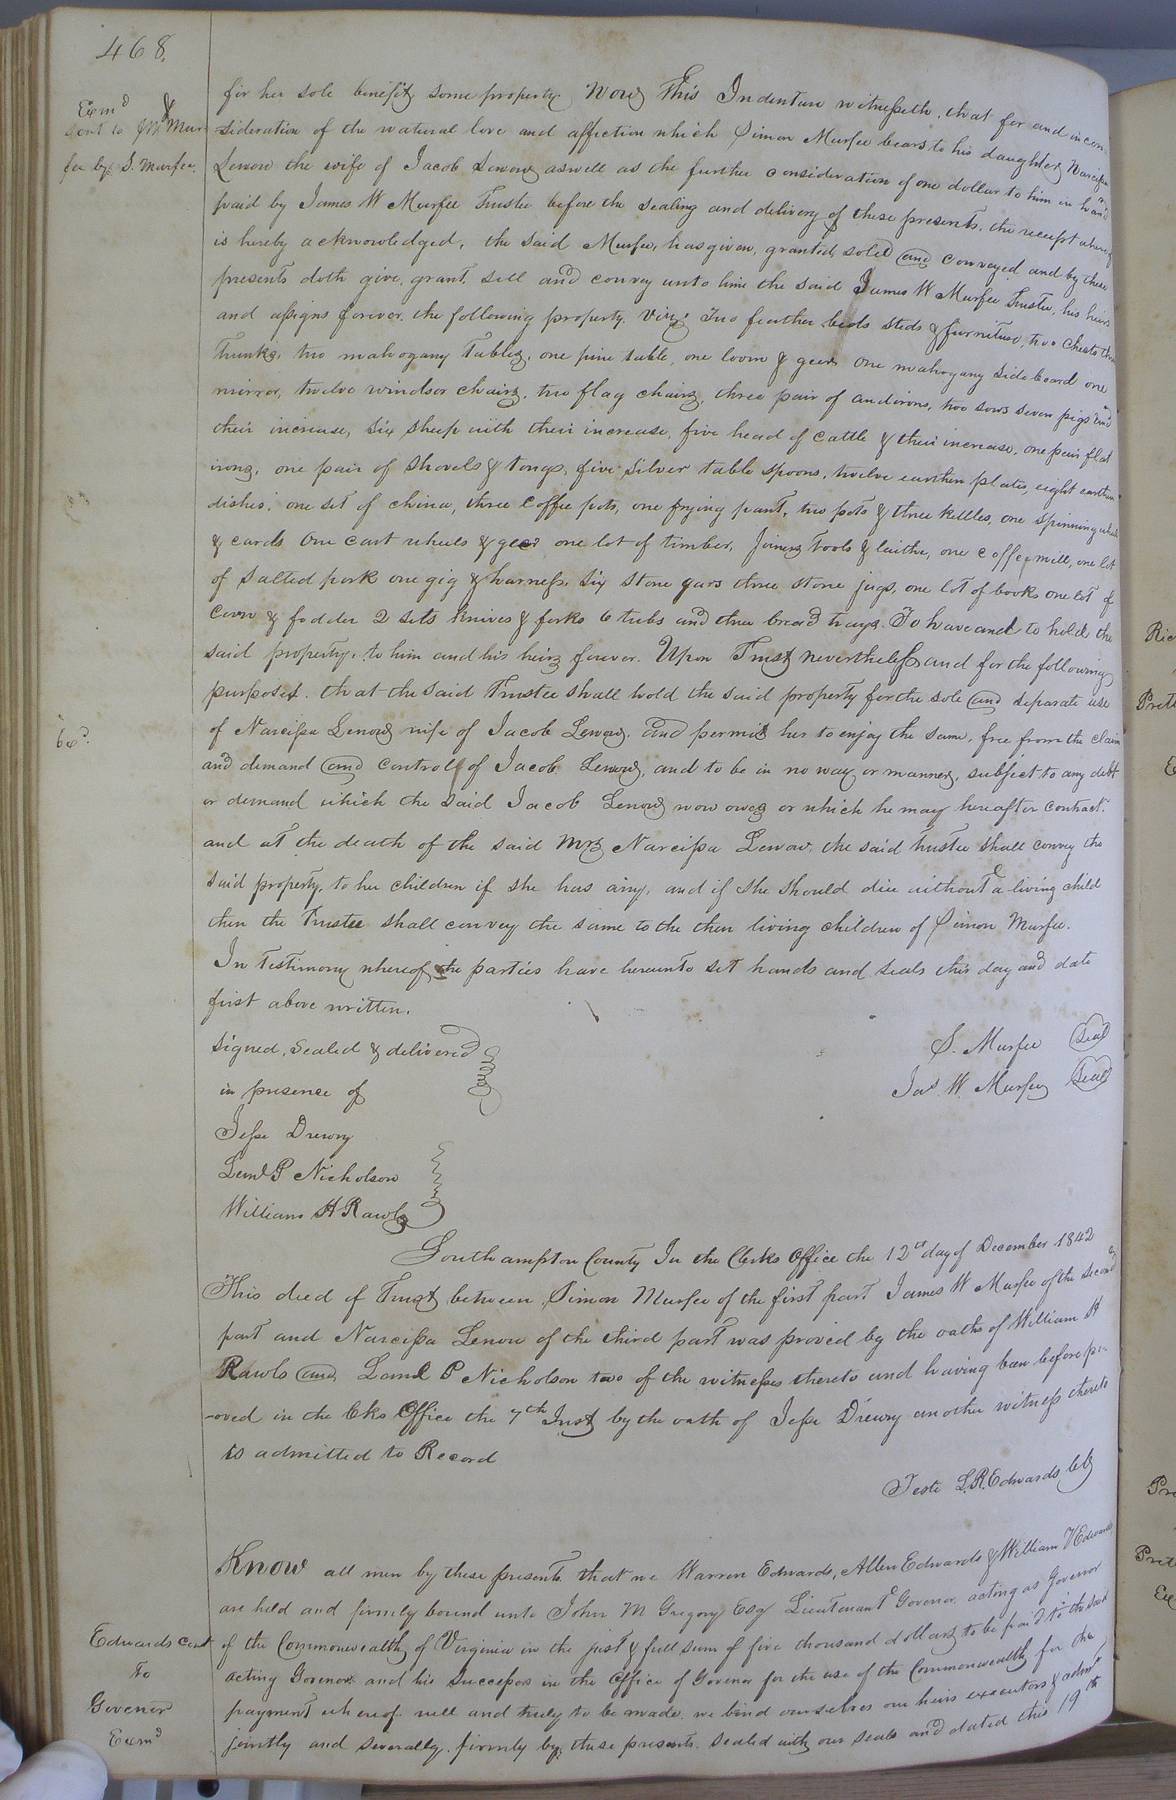 468.
Exmd &
sent to Jas W Mur
fee by S. Murfee.
for her sole benefit, some property Now This Indenture witnesseth, that for and in con-
sideration of the natural love and affection which Simon Murfee bears to his daughter Narcissa
Lenow the wife of Jacob Lenow aswell as the further consideration of one dollar to him in hand
paid by James W Murfee Trustee before the sealing and delivery of these presents, the receipt whereof
is hereby acknowledged, the said Murfee, has given, granted, sold and conveyed and by these
presents doth give, grant, sell and convey unto him the said James W Murfee Trustee, his heirs
and assigns forever, the following property. Viz; Two feather beds steds & furniture, two chests three
trunks, two mahogany Tables, one pine table, one loom & geer one mahogany sideboard one
mirror, twelve windsor chairs, two flag chairs, three pair of andirons, two sows seven pigs and
their increase, six sheep with their increase, five head of cattle & their increase, one pair flat
irons, one pair of shovels & tongs, five silver table spoons, twelve earthen plates, eight earthen
dishes, one set of china, three coffee pots, one frying pant, two pots & three kettles, one spinning wheel
& cards One cart wheels & geer one lot of timber, Joiners Tools & laithe, one coffee mill, one lot
of salted pork one gig & harness, six stone gars three stone jugs, one lot of books one lot of
Corn & fodder 2 sets knives & forks 6 tubs and three bread trays. To have and to hold the
said property, to him and his heirs forever. Upon Trust nevertheless and for the following
purposes. that the said Trustee shall hold the said property for the sole and separate use
of Narcissa Lenow wife of Jacob Lenow, and permit her to enjoy the same, free from the claim
and demand and controll of Jacob Lenow, and to be in no way or manner, subject to any debt
or demand which the said Jacob Lenow now owes or which he may hereafter contract.
and at the death of the said Mrs Narcissa Lenow, the said trustee shall convey the
said property, to her children if she has any, and if she should die without a living child
then the Trustee shall convey the same to the then living children of Simon Murfee.
In Testimony whereof the parties have hereunto set hands and seals this day and date
first above written.
Signed, Sealed & delivered
in presence of
Jesse Drewry
Leml P Nicholson
William H Rawls
S. Murfee Seal
Jas W. Murfee Seal
Southampton County In the Clerks Office the 12th day of December 1842
This deed of Trust between Simon Murfee of the first part James W Murfee of the second
part and Narcissa Lenow of the third part was proved by the oaths of William H
Rawls and Leml P Nicholson two of the witnesses thereto and having been before pr-
-oved in the Cks Office the 7th Inst by the oath of Jesse Drewry another witness thereto
is admitted to Record
Teste L.R. Edwards Clk
Know all men by these presents that we Warren Edwards, Allen Edwards & William V Edwards
are held and firmly bound unto John M Gregory Esq Lieutenant Govenor acting as Govenor
Edwards
To
Govenor
Exmd
of the Commonwealth of Virginia in the just & full sum of five thousand dollars to be paid to the said
acting Govenor and his Successors in the Office of Govenor for the use of the Commonwealth, for the
payment whereof well and truly to be made, we bind ourselves our heirs executors & admrs
jointly and severally, firmly by these presents. sealed with our seals and dated this 19th